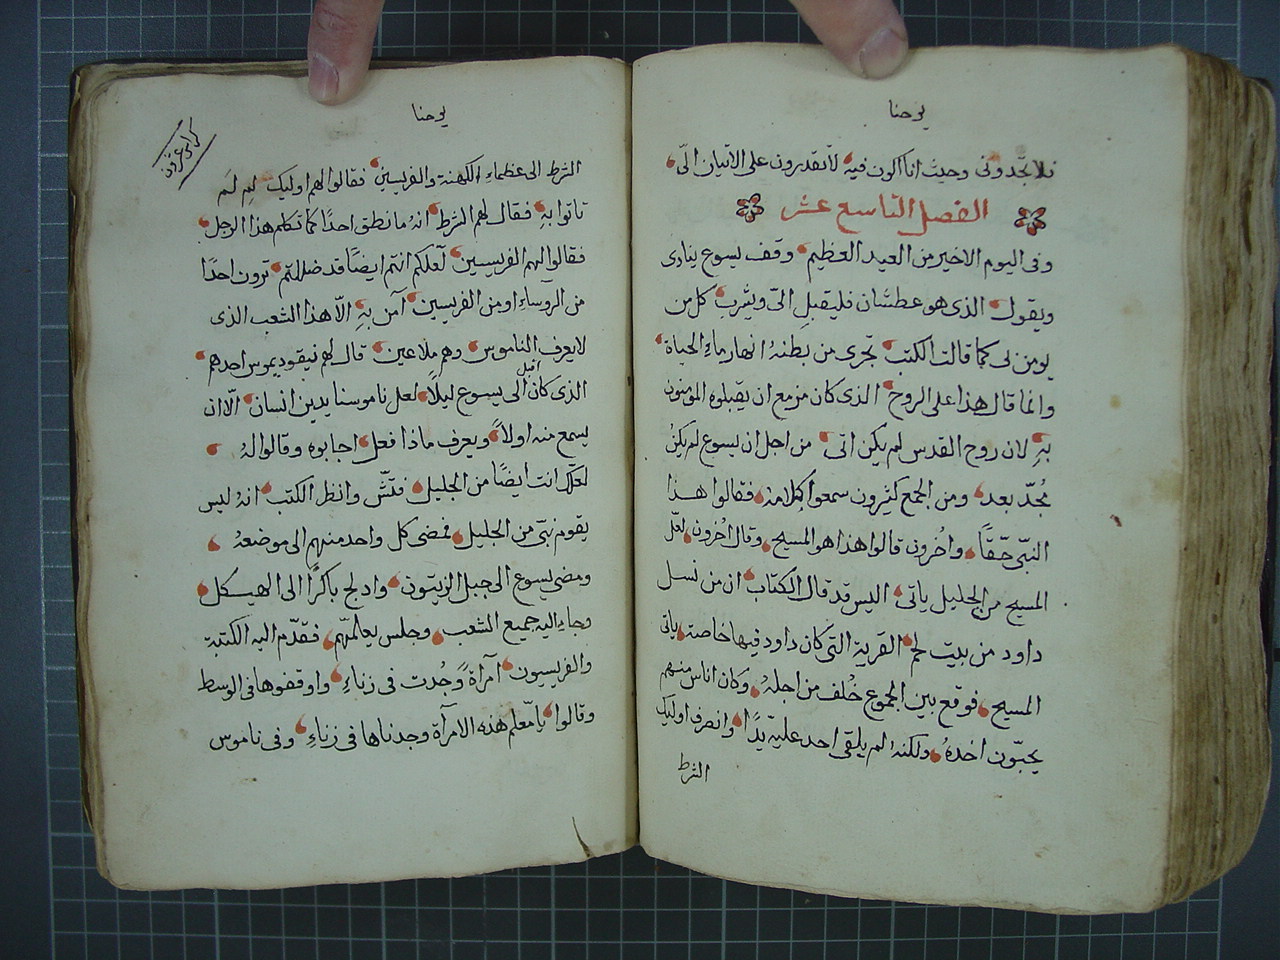 يوحنا
فلا تجدوني وحيث انا اكون فيه لا تقدرون على الاتيان اليّ
الفصل التاسع عشر
وفى اليوم الاخير من العيد العظيم وقف يسوع ينادى
ويقول الذى هو عطشان فليقبل اليّ ويشرب كل من
يومن بى كما قالت الكتب تجرى من بطنهُ انهار ماءِ الحياة
وانما قال هذا على الروح الذى كان مزمع ان يقبلوه المومنون
بهِ لان روح القدس لم يكن اتى من اجل ان يسوع لم يكنُ
مُجدّ بعد ومن الجمع كثيرون سمعوا كلامهُ فقالوا هذا
النبّى حّقًّا واُخرون قالوا هذا هو المسيح وقال اُخرون لعلّ
المسيح من الجليل ياتى اليس قد قال الكتاب ان من نسل
داود من بيت لحم القرية التى كان داود فيها خاصة ياتى
المسيح فوقع بين الجموع خُلف من اجلهُ وكان اناس منهم
يحبّون اخدهُ ولكنهُ لم يلقى احد عليه يدًا وانصرف اوليك
الشرط
يوحنا
الشرط الى عظماءِ الكهنة والفريسين فقالوا لهم اوليك لِمِ لَم
تاتوا بهِ فقال لهم الشرط انهُ ما نطق احدًا كما تكلم هذا الرجل
فقالوا لهم الفريسيين لعلكم انتم ايضًا قد ضللتم ترون احدًا
من الروساءِ او من الفريسين آمن بهِ الّا هذا الشعب الذى
لا يعرف الناموس وهم ملاعين قال لهم نيقوديموس احدهم
اقبل
الذى كان الى يسوع ليلًا لعل ناموسنا يدين انسان الّا ان
يسمع منه اولًا ويعرف ماذا فعل اجابوه وقالوا لهُ
لعلّك انت ايضًا من الجليل فتّش وانظر الكتب انهُ ليس
يقوم نبّى من الجليل فمضى كل واحد منهم الى موضعهُ
ومضى يسوع الى جبل الزيتون وادلج باكرًا الى الهيكل
وجاءِ اليه جميع الشعب وجلس يعلمهّم فقدّم اليه الكتبة
والفريسيون آمرآة وُجدت فى زناءِ واوقفوها فى الوسط
وقالوا يا مّعلم هذه الامرآة وجدناها فى زناءِ وفى ناموس